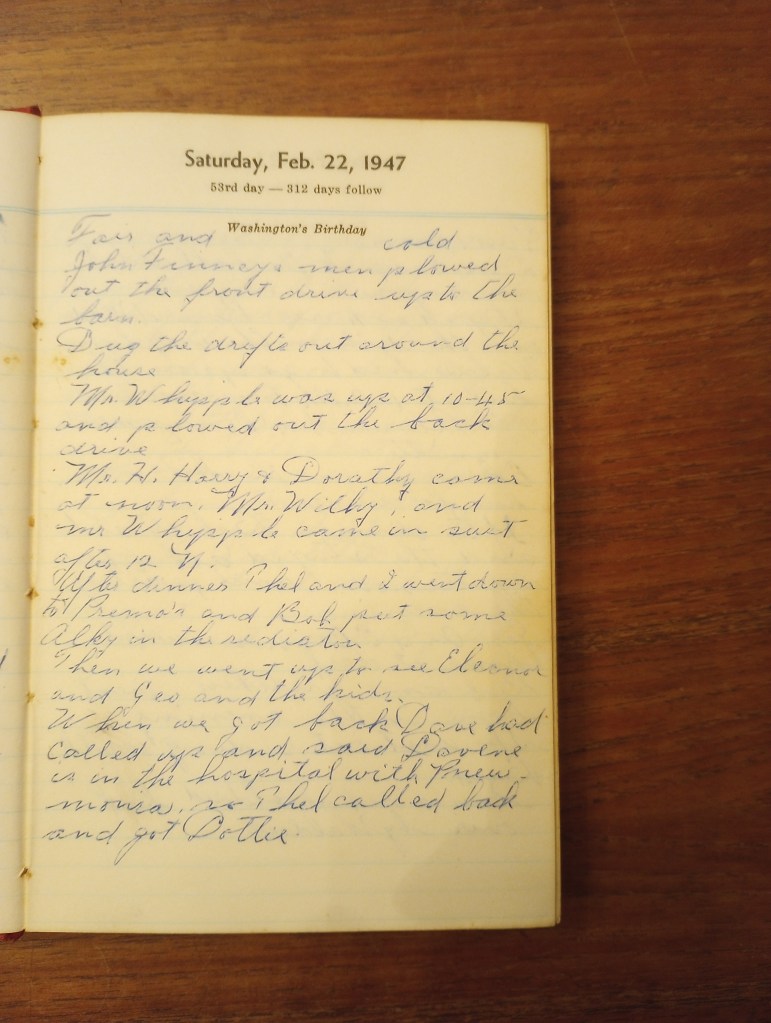 Saturday, Feb. 22, 1947
53rd day — 312 days follow
Washington's Birthday
Fair and cold
John Finneys men plowed
out the front drive up to the
barn.
Dug the drifts out around the
house
Mr. Whipple was up at 10-45
and plowed out the back
drive
Mr. H. Harry & Dorathy came
at noon. Mr. Wilby, and
mr Whipple came in just
after 12 N.
After dinner Thel and I went down
to Premo's and Bob put some
Alky in the rediator
Then we went up to see Eleanor
and Geo and the kids.
When we got back Dave had
called up and said Davene
is in the hospital with Pneu-
monia. so Thel called back
and got Dottie.